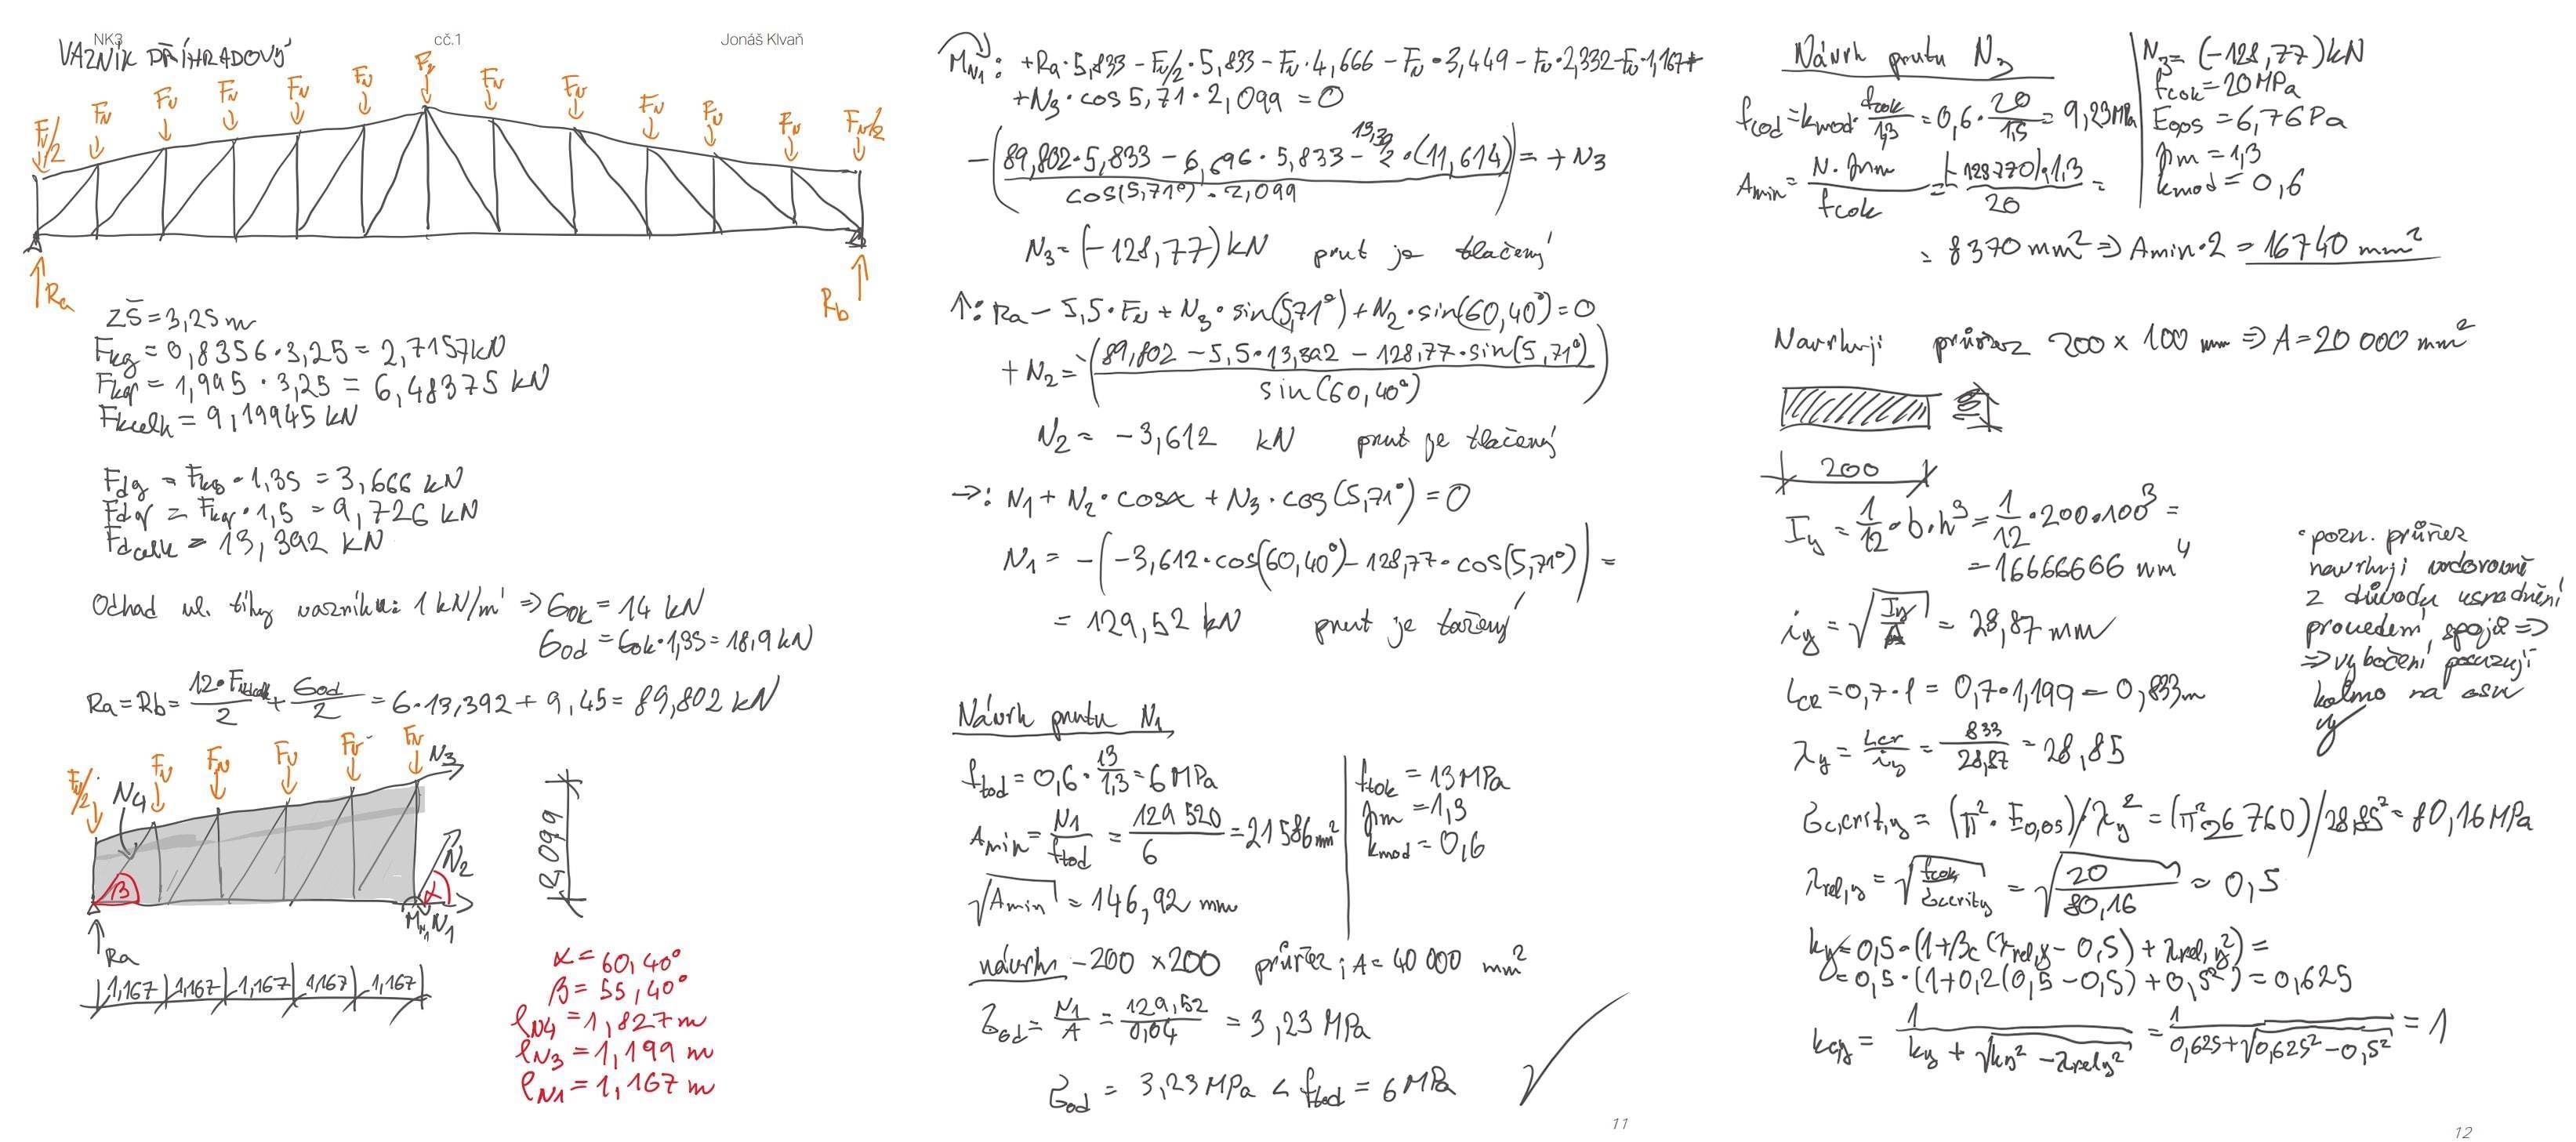 NK3 cč.1 Jonáš Klvaň
VAZNÍK PŘÍHRADOVÝ
Fv/2 Fv Fv Fv Fv Fv Fv Fv Fv Fv Fv Fv Fv/2
Ra Rb
ZŠ = 3,25 m
Fkg = 0,8356 · 3,25 = 2,7157 kN
Fkq = 1,995 · 3,25 = 6,48375 kN
Fkcelk = 9,19945 kN
Fdg = Fkg · 1,35 = 3,666 kN
Fdq = Fkq · 1,5 = 9,726 kN
Fdcelk = 13,392 kN
Odhad vl. tíhy vazníku: 1 kN/m' ⇒ Gok = 14 kN
God = Gok · 1,35 = 18,9 kN
Ra = Rb = 12 · Fvdcelk/2 + God/2 = 6 · 13,392 + 9,45 = 89,802 kN
Fv/2 Fv Fv Fv Fv Fv N3
N4
β α N2
MN1 N1
Ra
2,099
1,167 1,167 1,167 1,167 1,167
α = 60,40°
β = 55,40°
lN4 = 1,827 m
lN3 = 1,199 m
lN1 = 1,167 m
MN1: +Ra · 5,833 − Fv/2 · 5,833 − Fv · 4,666 − Fv · 3,449 − Fv · 2,332 − Fv · 1,167 +
+N3 · cos 5,71 · 2,099 = 0
−((89,802 · 5,833 − 6,696 · 5,833 − 13,392 · (11,614)) / (cos(5,71°) · 2,099)) = + N3
N3 = (−128,77) kN prut je tlačený
↑: Ra − 5,5 · Fv + N3 · sin(5,71°) + N2 · sin(60,40°) = 0
+ N2 = −((89,802 − 5,5 · 13,392 − 128,77 · sin(5,71°)) / sin(60,40°))
N2 = −3,612 kN prut je tlačený
→: N1 + N2 · cosα + N3 · cos(5,71°) = 0
N1 = −(−3,612 · cos(60,40°) − 128,77 · cos(5,71°)) =
= 129,52 kN prut je tažený
Návrh prutu N1
ftod = 0,6 · 13/1,3 = 6 MPa
Amin = N1/ftod = 129 520/6 = 21 586 mm²
√Amin = 146,92 mm
ftok = 13 MPa
γm = 1,3
kmod = 0,6
návrh − 200 × 200 průřez ; A = 40 000 mm²
σod = N1/A = 129,52/0,04 = 3,23 MPa
σod = 3,23 MPa < ftod = 6 MPa ✓
11
Návrh prutu N3
fcod = kmod · fcok/1,3 = 0,6 · 20/1,5 = 9,23 MPa
Amin = N · γm/fcok = (−128770) · 1,3/20 =
= 8370 mm² ⇒ Amin · 2 = 16740 mm²
N3 = (−128,77) kN
fcok = 20 MPa
E0,05 = 6,7 GPa
γm = 1,3
kmod = 0,6
Navrhuji průřez 200 × 100 mm ⇒ A = 20 000 mm²
200
Iy = 1/12 · b · h³ = 1/12 · 200 · 100³ =
= 16666666 mm⁴
iy = √(Iy/A) = 28,87 mm
Lcr = 0,7 · l = 0,7 · 1,199 = 0,833 m
λy = Lcr/iy = 833/28,87 = 28,85
· pozn. průřez
navrhuji vodorovně
z důvodu usnadnění
provedení spojů ⇒
⇒ vybočení posuzuji
kolmo na osu
y
σc,crit,y = (π² · E0,05)/λy² = (π² · 6 760)/28,85² = 80,16 MPa
λrel,y = √(fcok/σccrity) = √(20/80,16) = 0,5
ky = 0,5 · (1 + βc (λrel,y − 0,5) + λrel,y²) =
= 0,5 · (1 + 0,2 (0,5 − 0,5) + 0,5²) = 0,625
kcy = 1/(ky + √(ky² − λrely²)) = 1/(0,625 + √(0,625² − 0,5²)) = 1
12